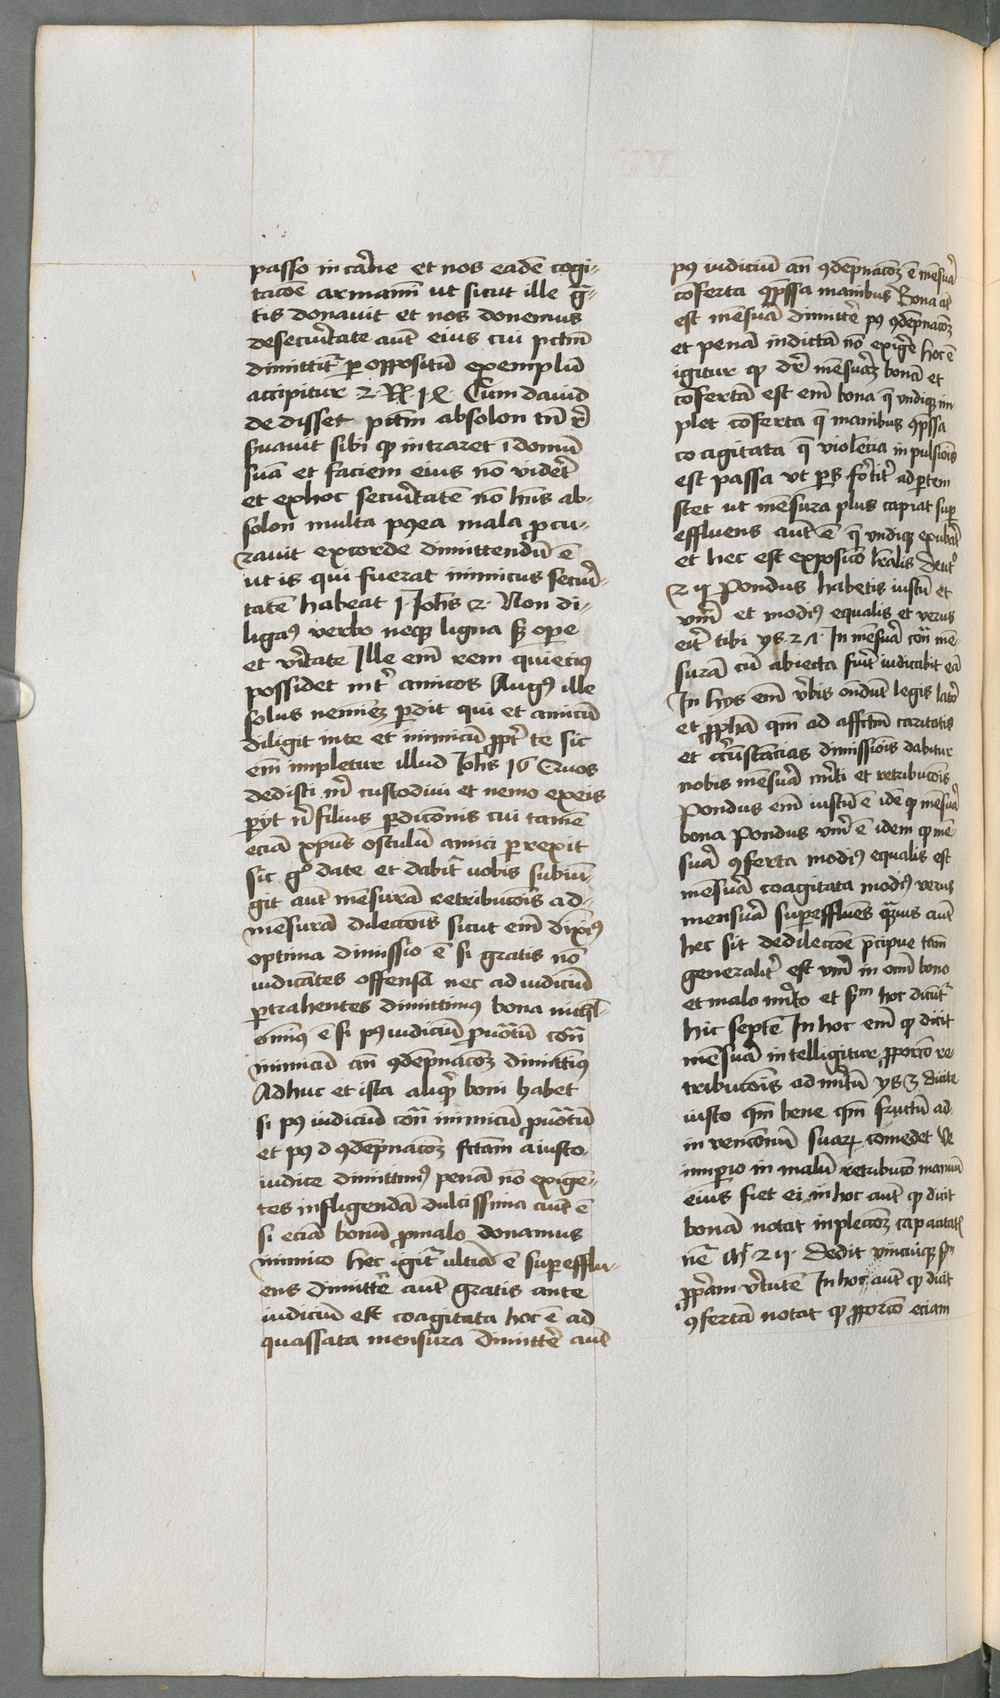 passo in carne et nos eadē cogi-
tacōe armamī ut sicut ille ḡra-
tis donavit et nos donemus
de securitate aut̄ eius cui pctm̄
dimittit̄ per oppositū exemplum
accipitur 2 . R̄ . 1ꝝ . Cum david
de disset pctm̄ absolon tn̄ 
suavit sibi ꝙ intraret ī domū
suā et faciem eius nō videret̄
et ex hoc securitatē nō hn̄s ab-
solon multa p9ea mala ꝓcu-
ravit ex corde dimittendū ē
ut is qui fuerat inimicus securi-
tatē habeat 1 Joh̄s 2 . Non di-
ligam9 verbo neqꝫ ligna sꝫ ope
et vītate Ille em̄ rem quieci9
possidet int̄ amicos Aug9 ille
solus neminē ꝑdit qui et amicū
diligit in te et inimicū ꝓpt̄ te sic
em̄ impletur illud Joh̄s 16 Quos
dedisti m̄ custodivi et nemo ex eis
ꝑijt n̄ filius ꝑdicōnis cui tamē
eciā xp̄us osculū amici porrexit
sic g° date et dabit̄ vobis subiun-
git aut̄ mēsurā retribucōis ad
mēsurā dileccōis sicut em̄ dixim9
optima dimissio ē si gratis nō
iudicātes offensā nec ad iudiciū
ꝑtrahentes dimittimus bona nichil-
omin9 ē si p9 iudiciū
inimicū an̄ 9dēpnacōꝫ dimittim9
Adhuc et ista aliqd̄ boni habet
si p9 iudiciū con̄ inimicū
et p9 9dēpnacōꝫ fctam a iusto
iudice dimittim9 penā nō exigē-
tes infligendā dulcissima aut̄ ē
si eciā bonū ꝓ malo donamus
inimico hec igit̄ ultia ē supefflu-
ens dimitte aut̄ gratis ante
iudicium est coagitata hoc ē ad
quassata mensura Dimittē aut̄
p9 iudiciū an̄ 9dēpnacōꝫ ē mēsura
cōferta 9pssa manibus Bona aut̄
est mēsura dimittē p9 9dēpnacōꝫ
et penā indictā nō exigē hoc ē
igitur ꝙ dr̄ mēsuraꝫ bonā et
cōfertā est em̄ bona q̄ undiqꝫ im-
plet cōferta q̄ manibus 9pssa
coagitata q̄ violencia inpulsiōis
est passa ut p9 fortit̄ ad ptem
stet ut mēsura plus capiat sup
effluens aut̄ ē q̄ undiqꝫ exubāt
et hec est exposicō lralis Deut°
2 Pondus habetis iustū et
verū et modi9 equalis et verus
erit tibi ys . 27 . In mēsura con̄ mē-
surā cū abiecta fuit̄ iudicabit eā
In hys em̄ verbis ondūt legis lator
et ꝓphā qm̄ ad affctm̄ caritatis
et circūstācias dimissiōis dabitur
nobis mēsurā mīti et retribucōis
Pondus em̄ iustū ē idē ꝙ mēsura
bona Pondus verū ē idem ꝙ mē-
surā 9ferta modi9 equalis est
mēsurā coagitata modi9 verus
mensura supeffluēs q̄mvis aut̄
hec sit de dileccōe pcipue tam̄
generalit̄ est verū in om̄i bono
et malo mīto et sm̄ hoc dicūt̄
hic septē In hoc em̄ ꝙ dicit
mēsurā intelligitur ꝓporcō re-
tribucōis ad mītū ys 3 dicite
iusto qm̄ bene qm̄ fructū ad
invencionū suaꝝ comedet Ve
impio in malū retribucō manuū
eius fiet ei in hoc aut̄ ꝙ dicit
bonā notat inpleccōꝫ capacitatis
Dedit unicuiqꝫ sm̄
ꝓpam virtutē In hoc aut̄ ꝙ dicit
9fertā notat ꝙ ꝓporcō eciam